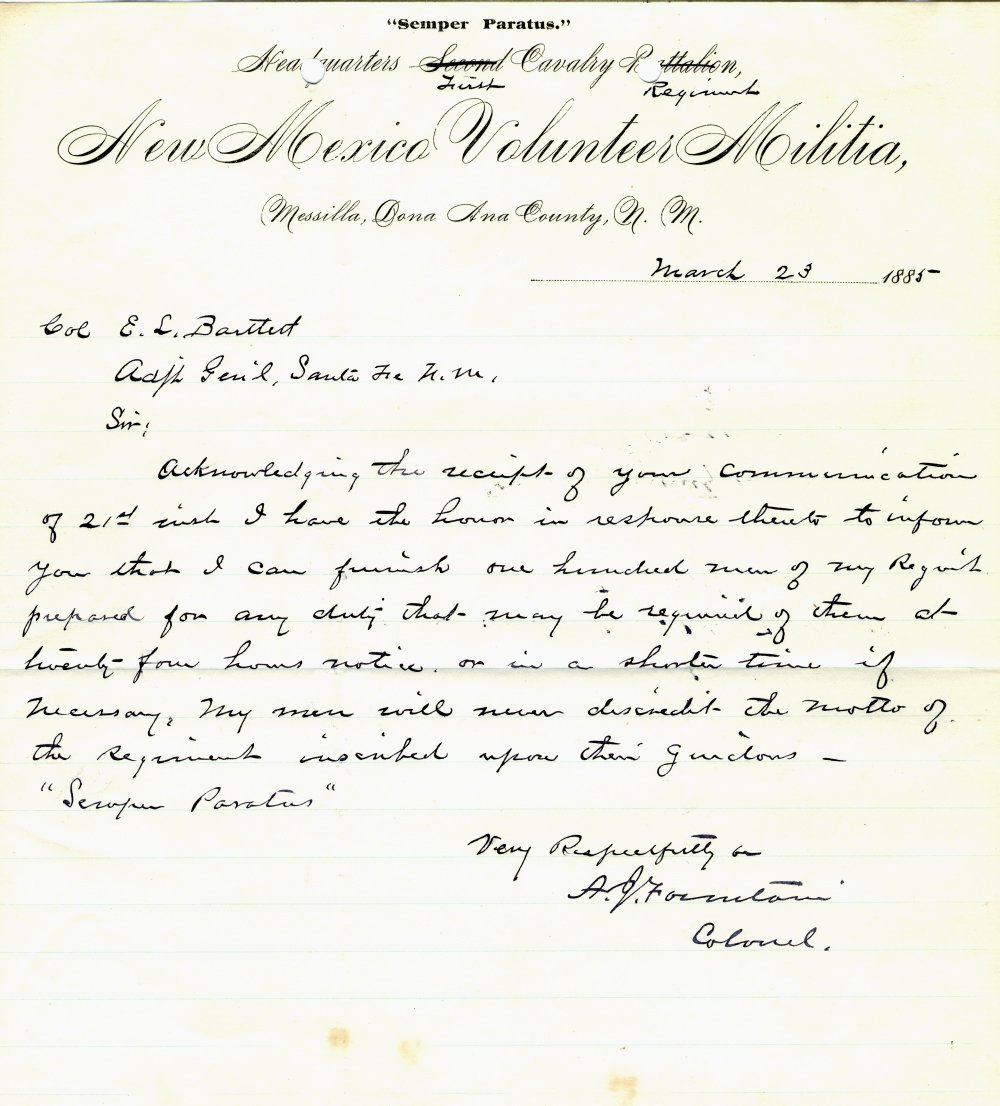 "Semper Paratus."
Headquarters Second Cavalry Battalion,
First Regiment
New Mexico Volunteer Militia,
Messilla, Dona Ana County, N. M.
March 23 1885
Col E. L. Bartlett
Adjt Gen'l, Santa Fe N.M.
Sir;
Acknowledging the receipt of your communication
of 21st inst I have the honor in response thereto to inform
you that I can furnish one hundred men of my Regmt
prepared for any duty that may be required of them at
twenty-four hours notice. or in a shorter time if
necessary, My men will never discredit the motto of
the regiment inscribed upon their Guidons —
"Semper Paratus"
Very Respectfully
A. J. Fountain
Colonel.